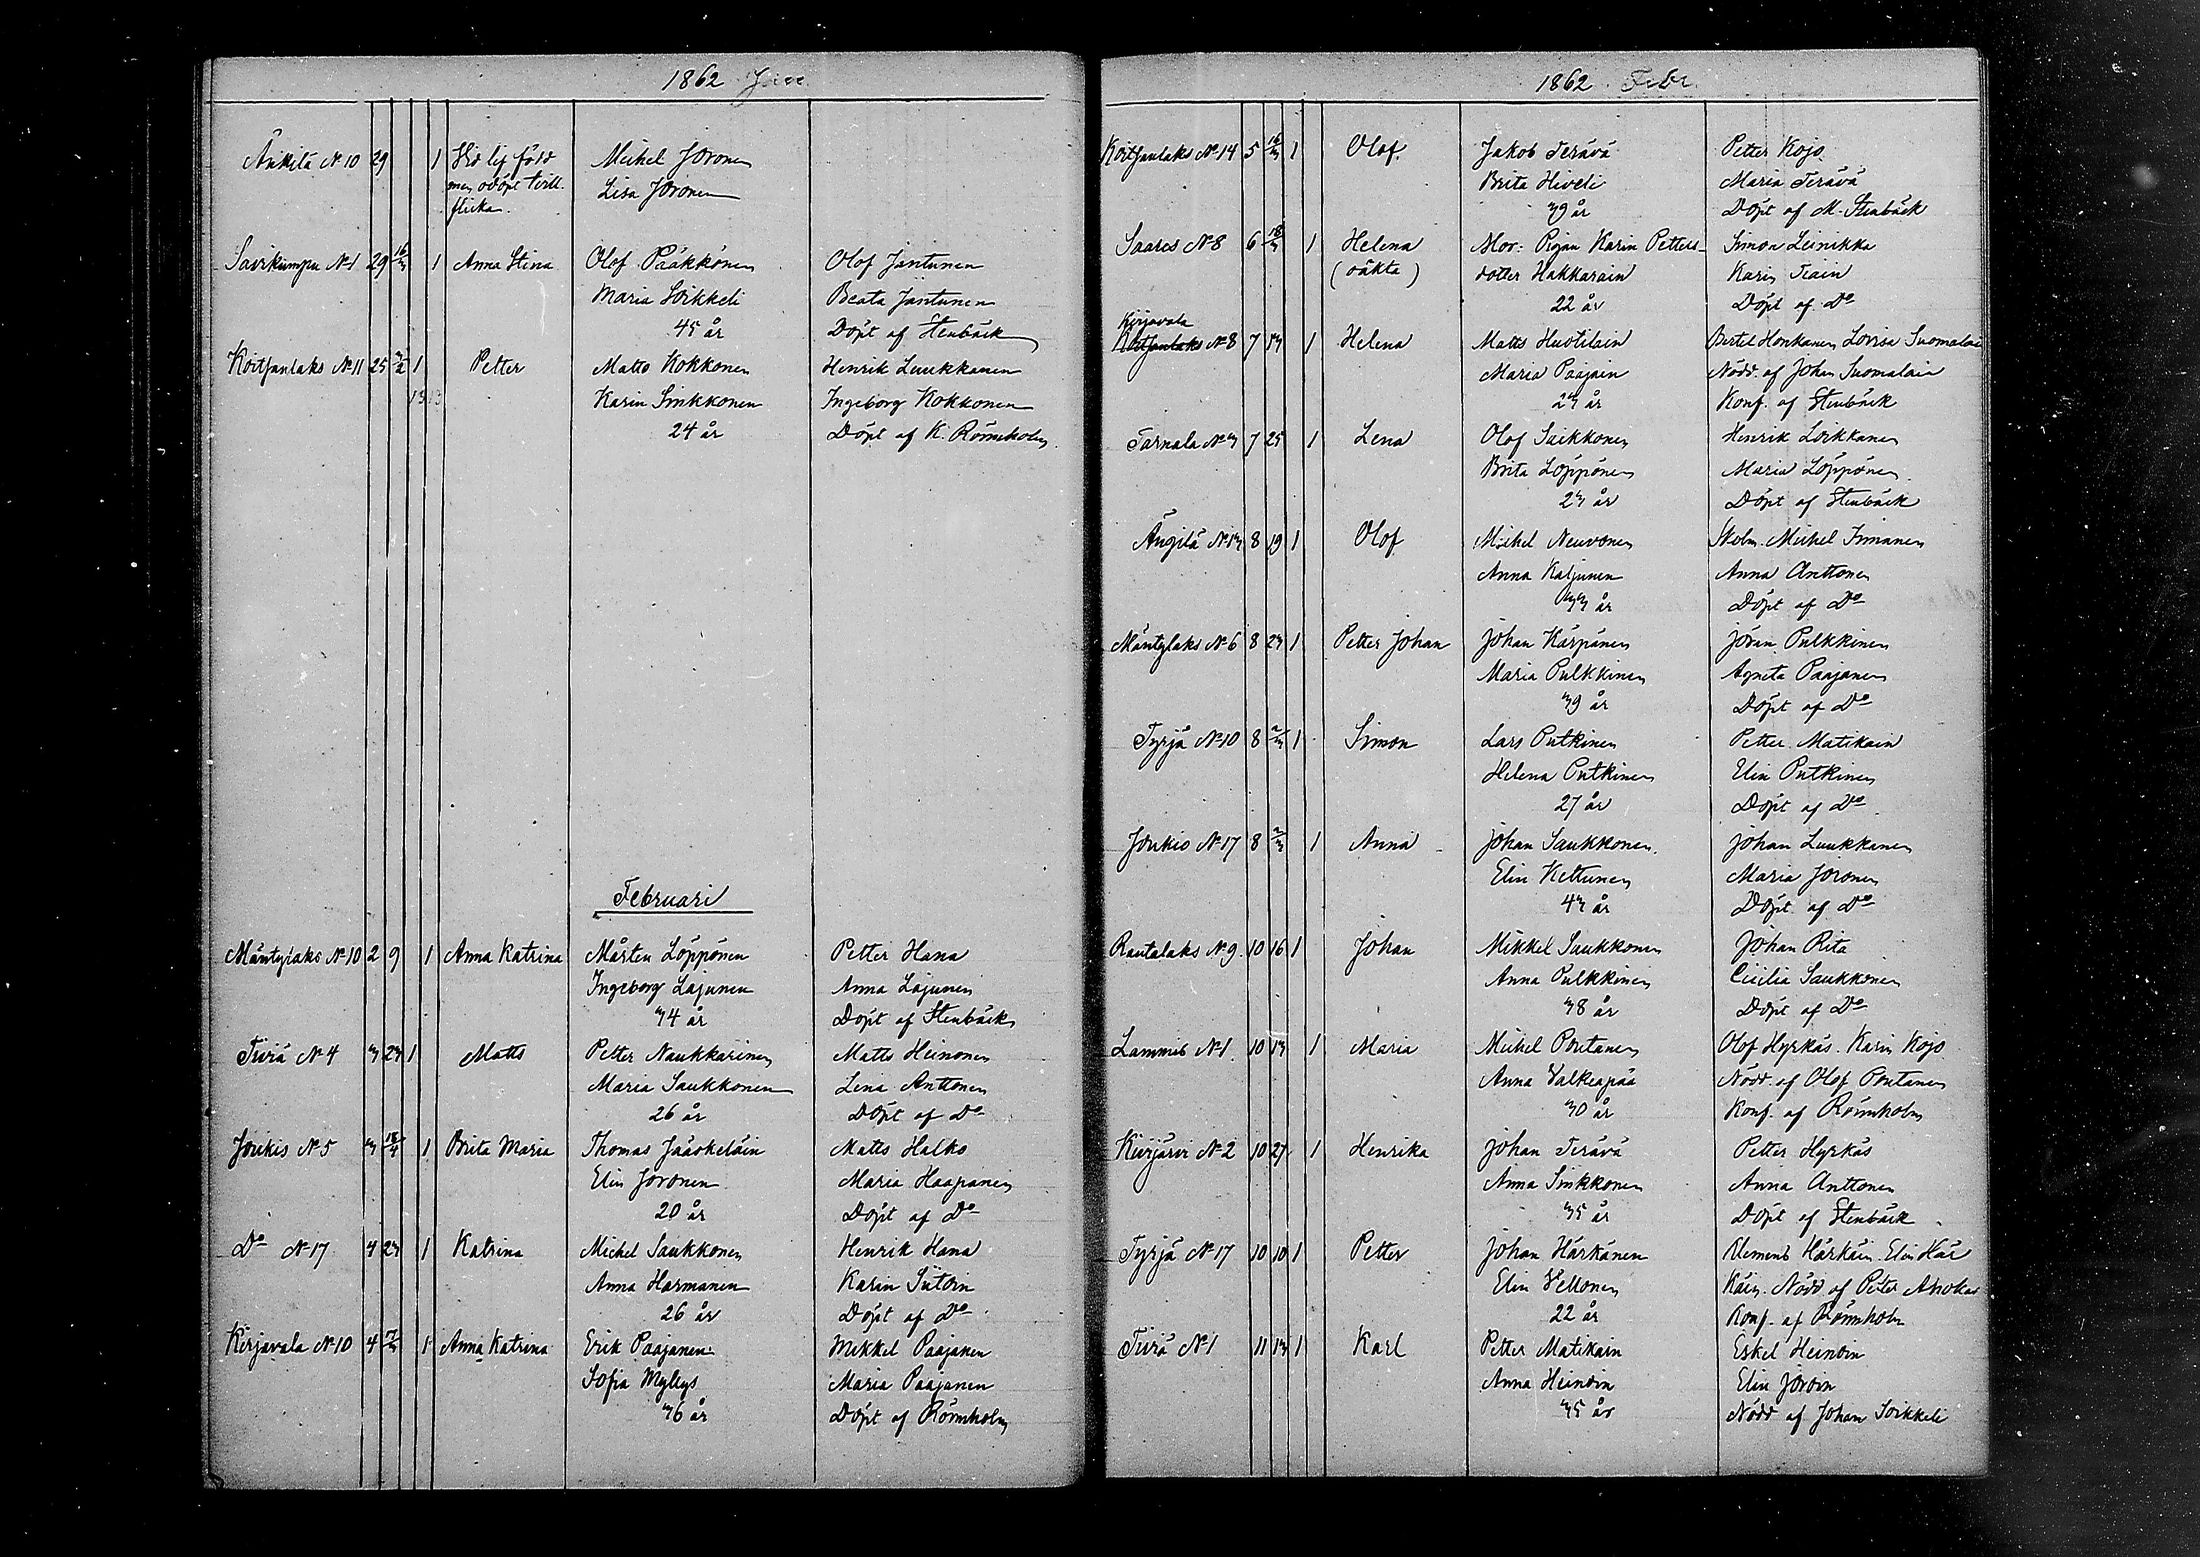 1862 Jan.
Änkilä No 10 29 1 Vid lif född Michel Joronen
men odöpt tvill. Lisa Joronen
flicka.
Savikumpu No 1 29 16/3 1 Anna Stina Olof Pääkkönen Olof Jantunen
Maria Soikkeli Beata Jantunen
45 år Döpt af Stenbäck
Koitsanlaks No 11 25 3/2 1 Petter Matts Kokkonen Henrik Luukkanen
13 13 Karin Sinkkonen Ingeborg Kokkonen
24 år Döpt af K. Rönnholm
Februari
Mäntylaks No 10 2 9 1 Anna Katrina Mårten Löppönen Petter Hana
Ingeborg Lajunen Anna Lajunen
34 år Döpt af Stenbäck
Tiviä No 4 3 23 1 Matts Petter Naukkarinen Matts Heinonen
Maria Saukkonen Lena Anttonen
26 år Döpt af Do
Joukis No 5 3 18/4 1 Brita Maria Thomas Jääskeläin Matts Halko
Elin Joronen Maria Haapanen
20 år Döpt af Do
Do No 17 4 23 1 Katrina Michel Saukkonen Henrik Hana
Anna Harmanen Karin Sutoin
26 år Döpt af Do
Kirjavala No 10 4 1 Anna Katrina Erik Paajanen Mikkel Paajanen
Sofia Myllys Maria Paajanen
36 år Döpt af Rönnholm
1862 Febr.
Koitsanlaks No 14 5 16/3 1 Olof Jakob Terävä Petter Kojo
Brita Hiveli Maria Terävä
39 år Döpt af M. Stenbäck
Saares No 8 6 18/3 1 Helena Mor: Pigan Karin Petters- Simon Leinikka
(oäkta) dotter Hakkarain Karin Tiain
22 år Döpt af Do
Kirjavala
Koitsanlaks No 8 7 13 1 Helena Matts Huotilain Bertel Honkanen Lovisa Suomalain
Maria Paajain Nödd. af Johan Suomalain
23 år Konf. af Stenbäck
Tarnala No 3 7 25 1 Lena Olof Saikkonen Henrik Loikkanen
Brita Löppönen Maria Löppönen
23 år Döpt af Stenbäck
Ängilä No 13 8 19 1 Olof Mikkel Neuvonen Skolm. Michel Immanen
Anna Kaljunen Anna Anttonen
33 år Döpt af Do
Mäntylaks No 6 8 23 1 Petter Johan Johan Kärpänen Jöran Pulkkinen
Maria Pulkkinen Agneta Paajanen
39 år Döpt af Do
Tyrjä No 10 8 2/3 1 Simon Lars Putkinen Petter Matikain
Helena Putkinen Elin Putkinen
27 år Döpt af Do
Joukio No 17 8 2/3 1 Anna Johan Saukkonen Johan Luukkanen
Elin Kettunen Maria Joronen
43 år Döpt af Do
Rautalaks No 9 10 16 1 Johan Mikkel Saukkonen Johan Rita
Anna Pulkkinen Cicilia Saukkonen
38 år Döpt af Do
Lammis No 1 10 13 1 Maria Michel Poutanen Olof Hyrkäs. Karin Kojo
Anna Valkeapää Nödd. af Olof Poutanen
30 år Konf. af Rönnholm
Kivijärvi No 2 10 27 1 Henrika Johan Terävä Petter Hyrkäs
Anna Sinkkonen Anna Anttonen
35 år Döpt af Stenbäck
Tyrjä No 17 10 10 1 Petter Johan Härkänen Klemens Härkäin. Elin Här
Elin Vellonen käin. Nödd. af Peter
22 år Konf. af Rönnholm
Tiviä No 1 11 13 1 Karl Petter Matikain Eskel Heinoin
Anna Heinoin Elin Joroin
35 år Nödd af Johan Soikkeli